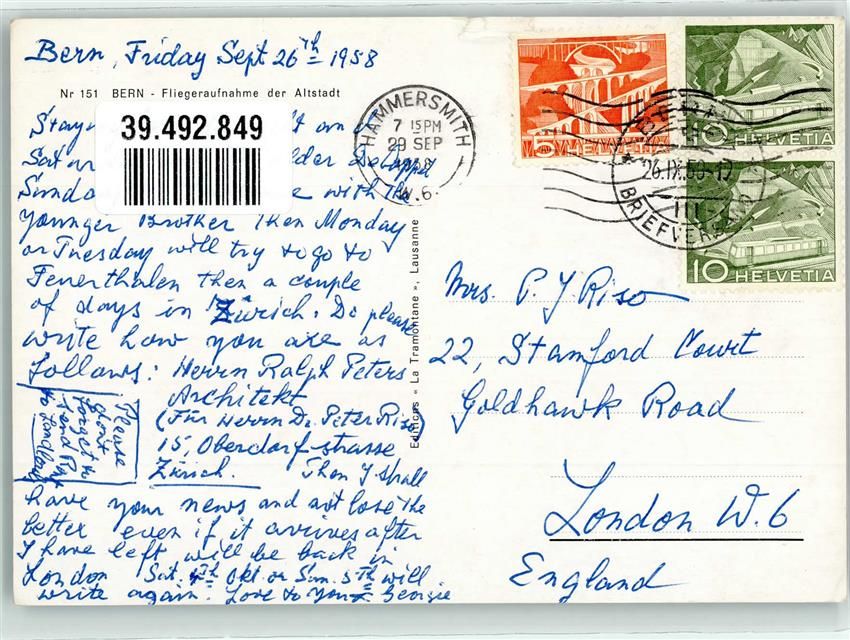 Bern, Friday Sept 26th 1958
Nr 151 BERN - Fliegeraufnahme der Altstadt
39.492.849
Stay
Sat
Sunda with the
younger Brother then Monday
or Tuesday will try to go to
Feuerthalen then a couple
of days in Zürich. Do please
write how you are as
follows: Herrn Ralph Peters
Architekt
(Für Herrn Dr. Peter Riso)
15, Oberdorf-strasse
Zürich. Then I shall
Please
dont
forget to
send Rent
to Landlord
have your news and not lose the
better even if it arrives after
I have left will be back in
London Sat. 4th Okt or Sun. 5th will
write again. Love to you Georgie
Editions « La Tramontane », Lausanne
HAMMERSMITH
7 15PM
29 SEP
W.6.
5 HELVETIA
10 HELVETIA
10 HELVETIA
26.IX.58-19
III
BRIEFVERSAND
Mrs. P. J Riso
22, Stamford Court
Goldhawk Road
London W.6
England